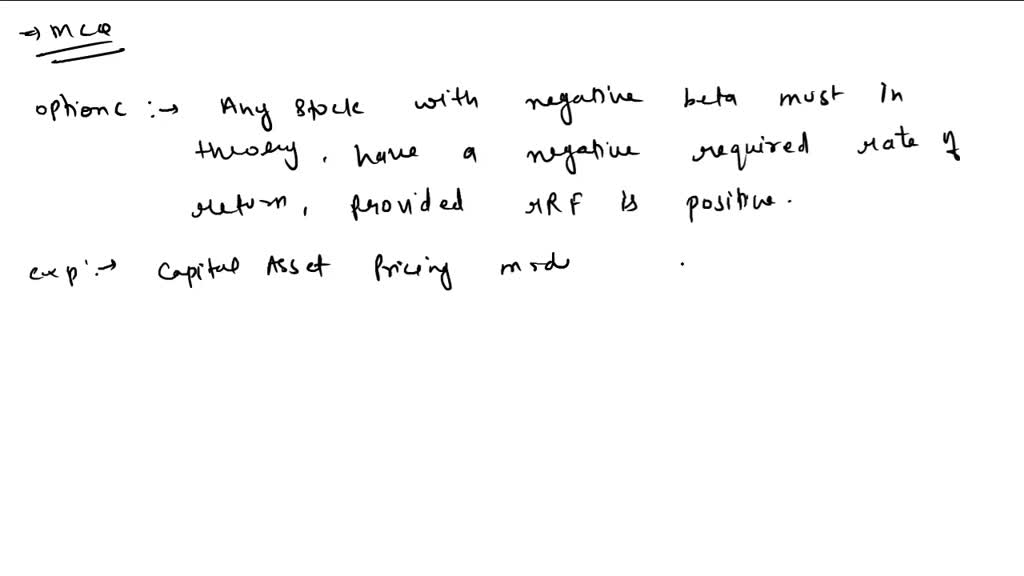 ⇒ MCQ
option c :→ Any stock with negative beta must in
theory, have a negative required rate of
return, provided rRF is positive.
exp :→ Capital Asset Pricing mode